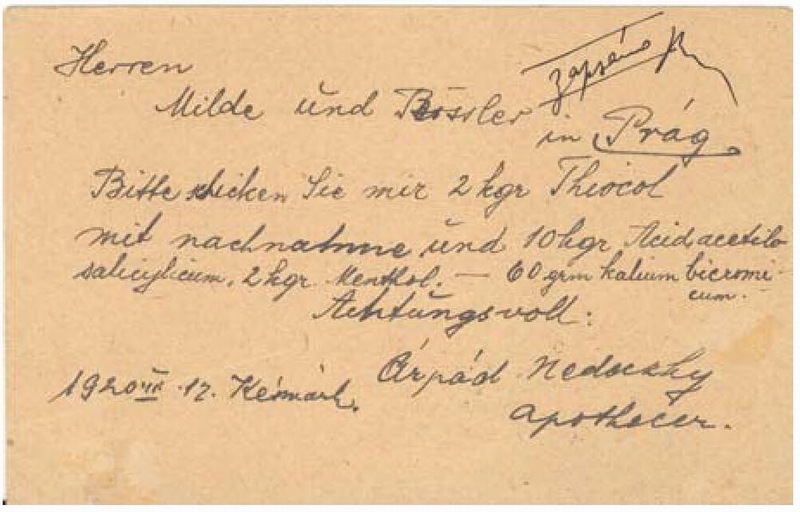 Herren
zapsáno
Milde und Rössler
in Prág
Bitte schicken Sie mir 2 kgr Thiocol
mit nachnahme und 10 kgr Acid acetilo
salicylicum, 2 kgr. Menthol. — 60 grm kalium bicromi-
cum.
Achtungsvoll:
Árpád Nedeczky
1920 17. Késmárk.
apothecer.